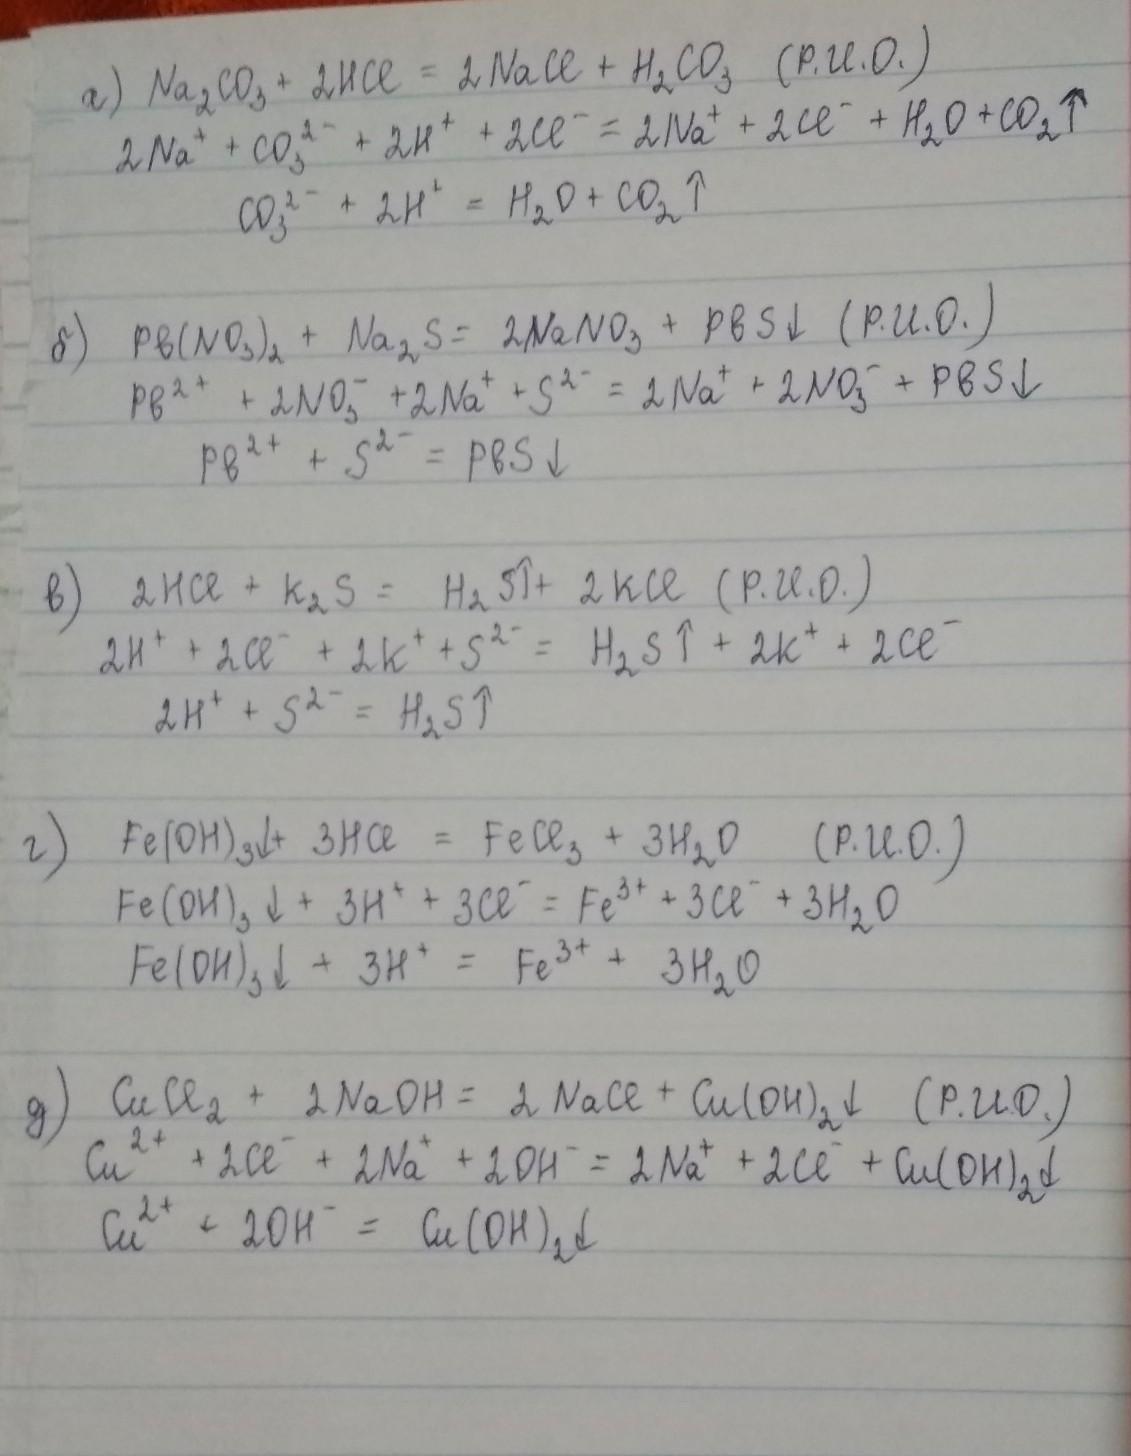 а) Na₂CO₃ + 2HCl = 2NaCl + H₂CO₃ (Р.И.О.)
2Na⁺ + CO₃²⁻ + 2H⁺ + 2Cl⁻ = 2Na⁺ + 2Cl⁻ + H₂O + CO₂↑
CO₃²⁻ + 2H⁺ = H₂O + CO₂↑
б) Pb(NO₃)₂ + Na₂S = 2NaNO₃ + PbS↓ (Р.И.О.)
Pb²⁺ + 2NO₃⁻ + 2Na⁺ + S²⁻ = 2Na⁺ + 2NO₃⁻ + PbS↓
Pb²⁺ + S²⁻ = PbS↓
в) 2HCl + K₂S = H₂S↑ + 2KCl (Р.И.О.)
2H⁺ + 2Cl⁻ + 2K⁺ + S²⁻ = H₂S↑ + 2K⁺ + 2Cl⁻
2H⁺ + S²⁻ = H₂S↑
г) Fe(OH)₃↓ + 3HCl = FeCl₃ + 3H₂O (Р.И.О.)
Fe(OH)₃↓ + 3H⁺ + 3Cl⁻ = Fe³⁺ + 3Cl⁻ + 3H₂O
Fe(OH)₃↓ + 3H⁺ = Fe³⁺ + 3H₂O
д) CuCl₂ + 2NaOH = 2NaCl + Cu(OH)₂↓ (Р.И.О.)
Cu²⁺ + 2Cl⁻ + 2Na⁺ + 2OH⁻ = 2Na⁺ + 2Cl⁻ + Cu(OH)₂↓
Cu²⁺ + 2OH⁻ = Cu(OH)₂↓